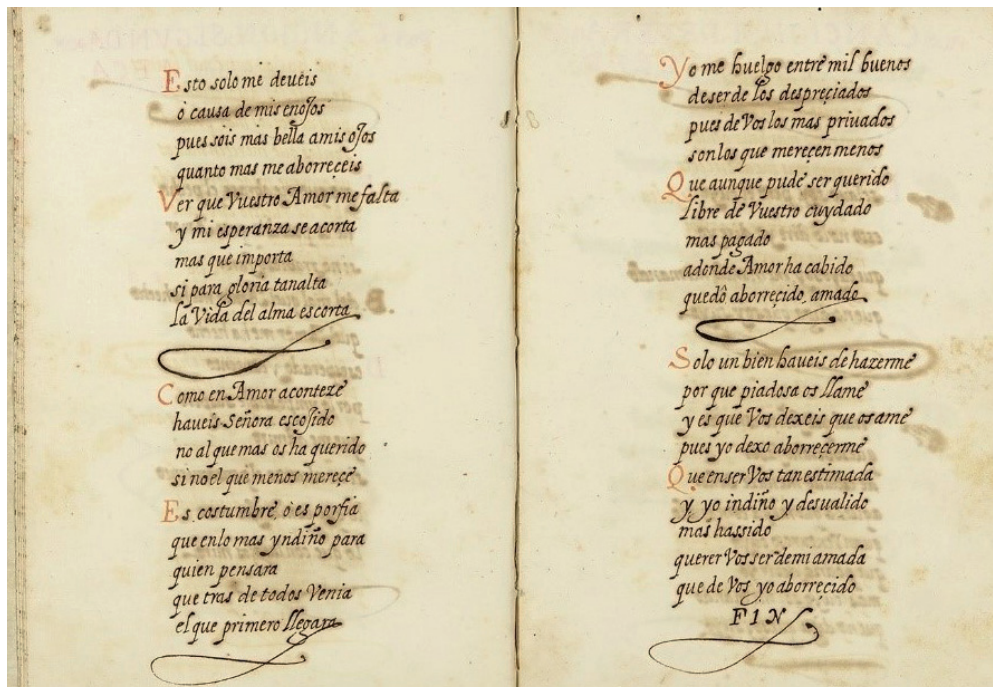 Esto solo me deueis
ò causa de mis enojos
pues sois mas bella a mis ojos
quanto mas me aborreçeis
Ver que Vuestro Amor me falta
y mi esperanza se acorta
mas que importa
si para gloria tan alta
la Vida del alma es corta
Como en Amor aconteze
haueis Señora escojido
no al que mas os ha querido
sino el que menos mereçe
Es costumbre, ò es porfia
que en lo mas yndiño para
quien pensara
que tras de todos Venia
el que primero llegara
Yo me huelgo entre mil buenos
de ser de los despreçiados
pues de Vos los mas priuados
son los que mereçen menos
Que aunque pude ser querido
libre de Vuestro cuydado
mas pagado
adonde Amor ha cabido
quedô aborreçido, amado
Solo un bien haueis de hazerme
por que piadosa os llame
y es que Vos dexeis que os ame
pues yo dexo aborreçerme
Que en ser Vos tan estimada
y yo indiño y desualido
mas ha ssido
querer Vos ser de mi amada
que de Vos yo aborreçido
FIN